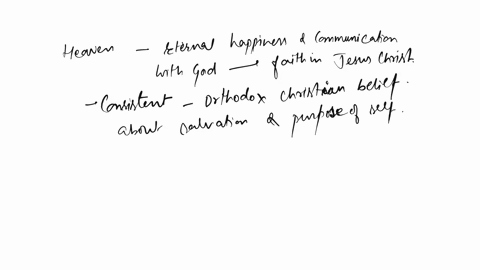 Heaven — Eternal happiness & Communication
with God → faith in Jesus Christ
- Consistent - Orthodox christian belief.
about salvation & purpose of self.